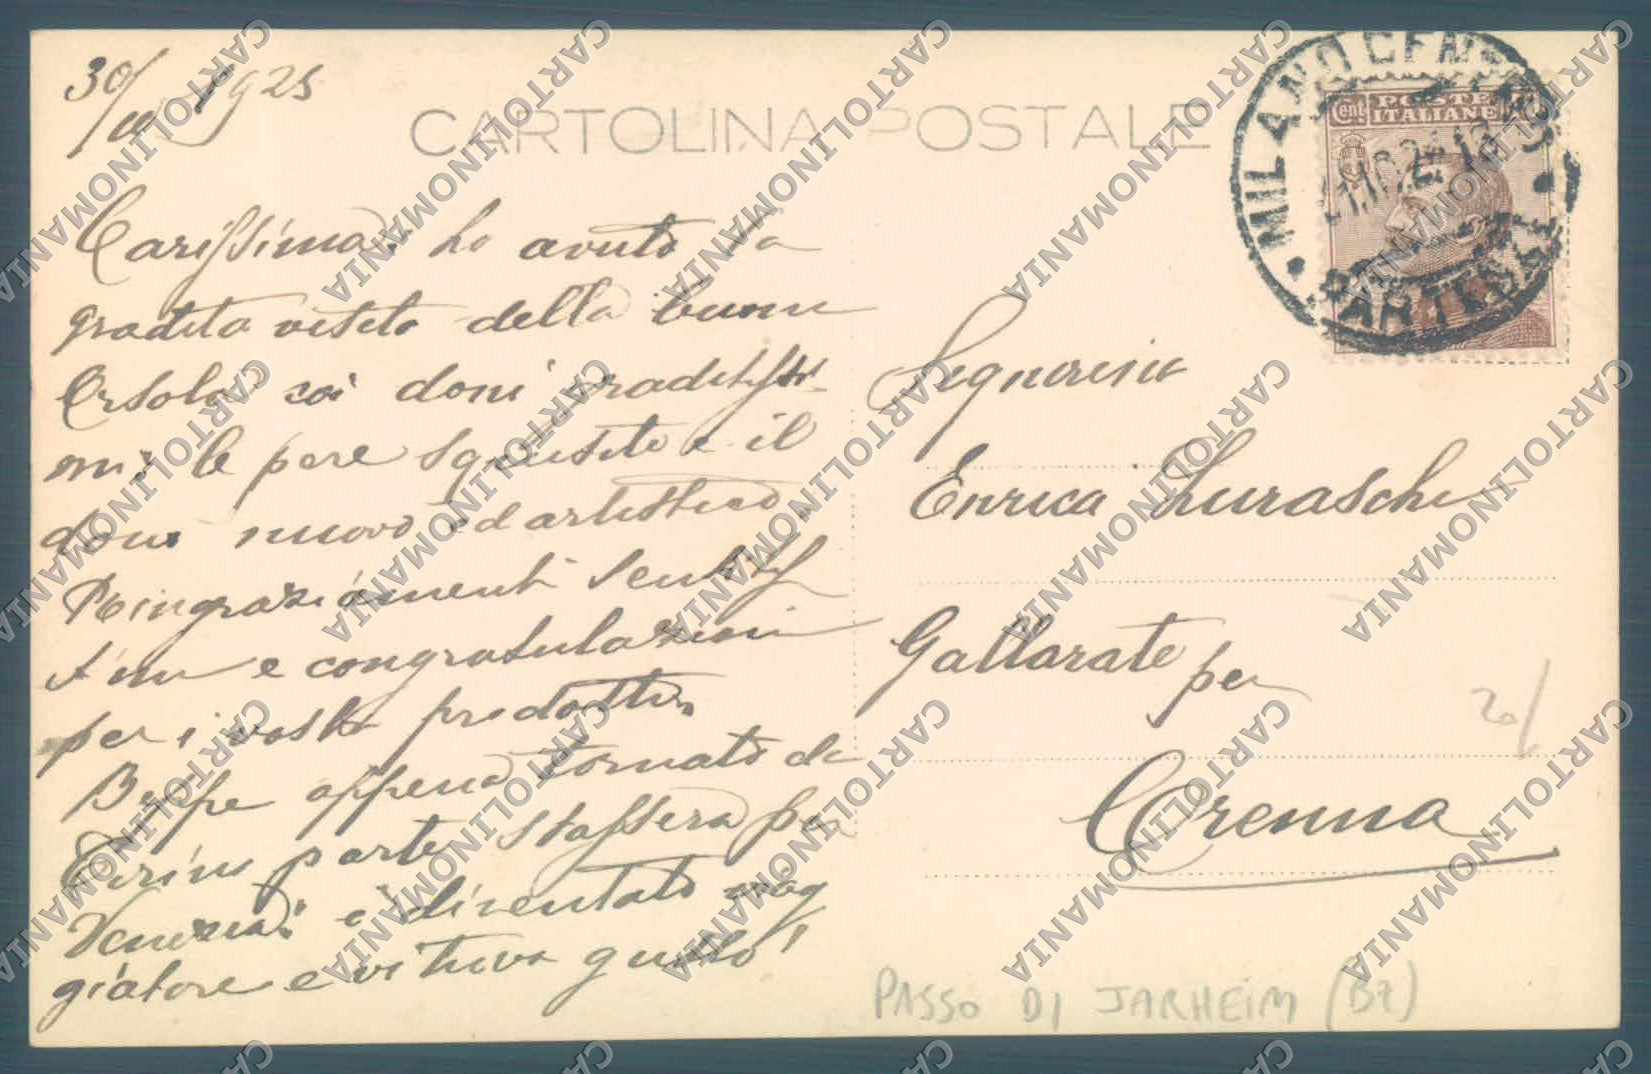 30/10 1925
CARTOLINA POSTALE
Carissima, ho avuto la
gradita visita della buona
Orsola coi doni graditissi-
mi: le pere squisite e il
dono nuovo ed artistico,
Ringraziamenti sentitis
simi e congratulazioni
per i vostri prodotti.
Beppe appena tornato da
Torino parte stassera per
Venezia: è diventato viag
giatore e vi trova gusto!
Cent POSTE
ITALIANE
MILANO CENTRO
PARTENZA
Signorina
Enrica Luraschi
Gallarate per
Crenna
20/
PASSO DI JARHEIM (BZ)
CARTOLINOMANIA